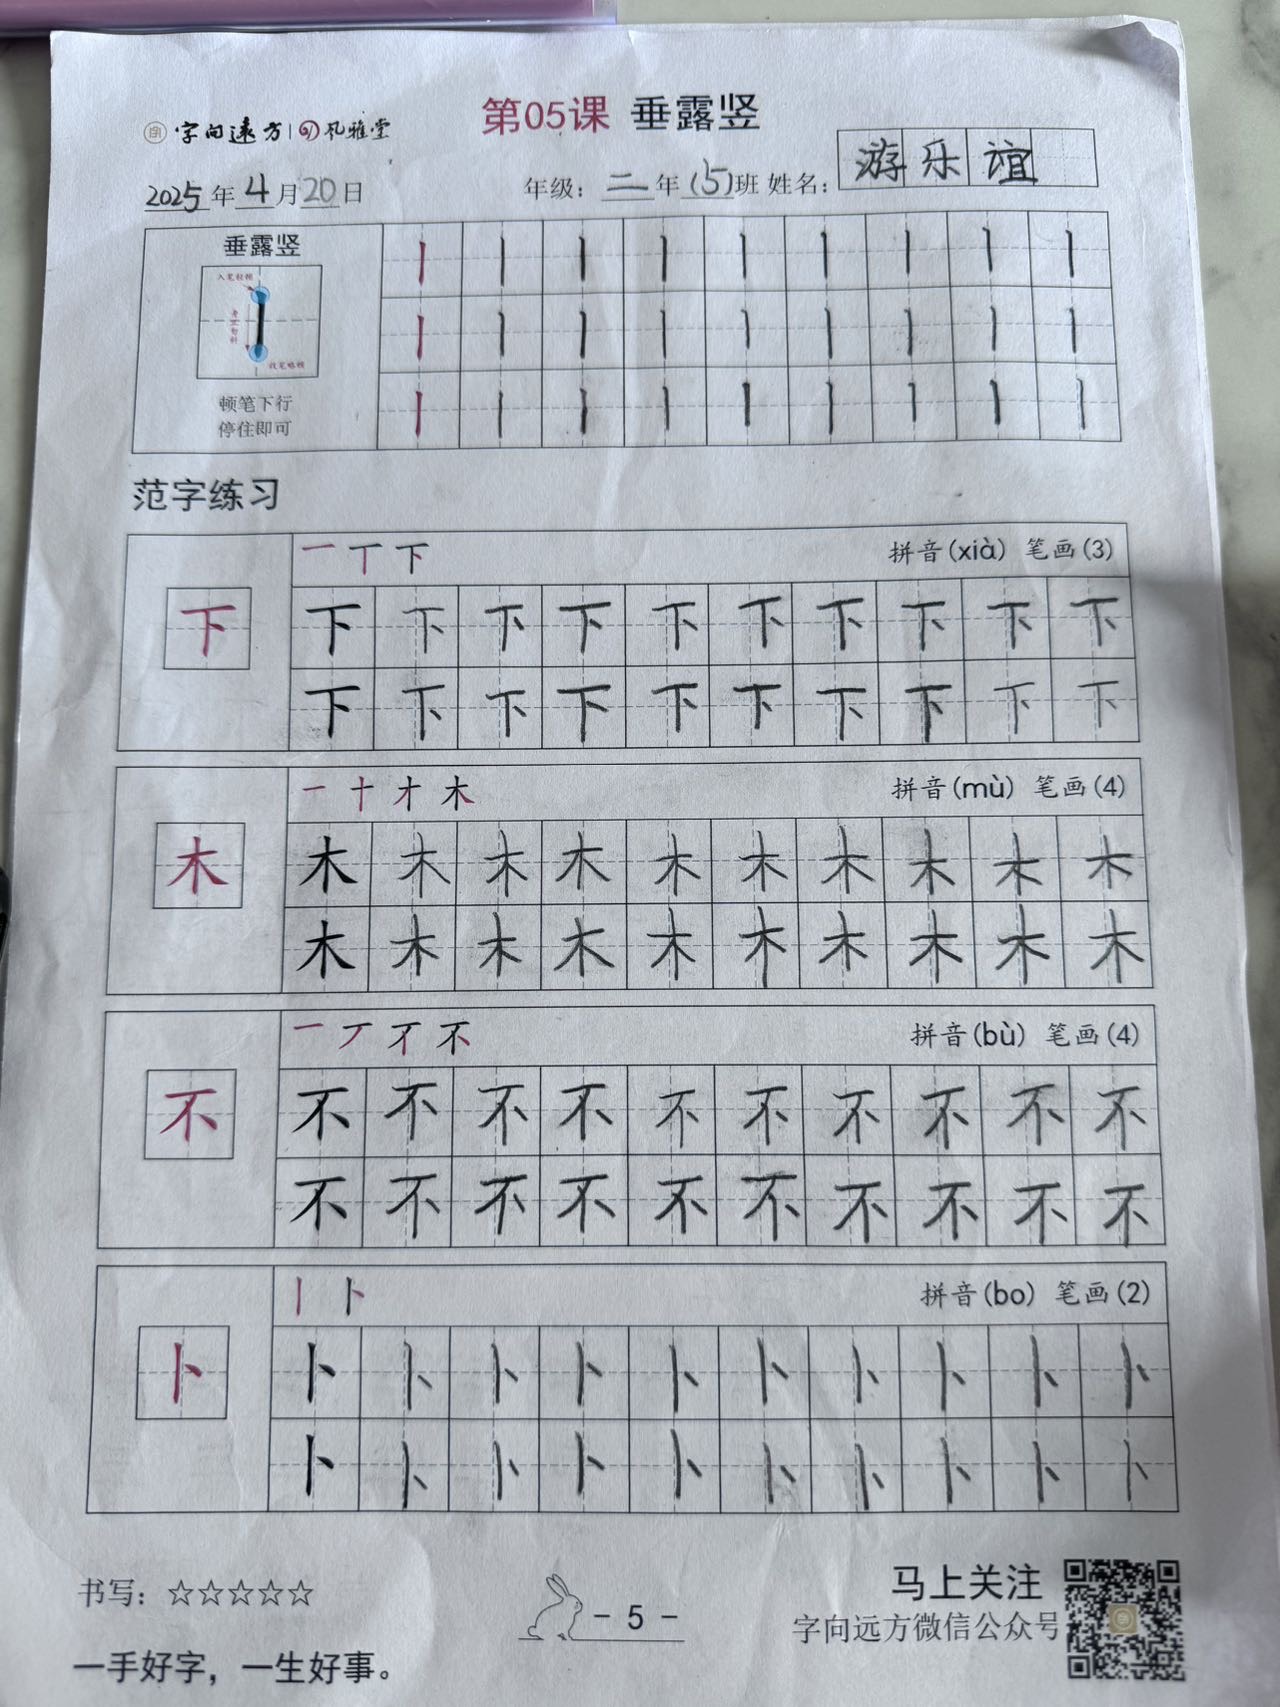 第05课 垂露竖
字向远方 风雅堂
2025年4月20日 年级：二年(5)班 姓名：游乐谊
垂露竖
入笔轻顿
收笔略顿
顿笔下行
停住即可
范字练习
一 丅 下 拼音(xià) 笔画(3)
下 下 下 下 下 下 下 下 下 下 下
下 下 下 下 下 下 下 下 下 下
一 十 才 木 拼音(mù) 笔画(4)
木 木 木 木 木 木 木 木 木 木 木
木 木 木 木 木 木 木 木 木 木
一 丆 不 拼音(bù) 笔画(4)
不 不 不 不 不 不 不 不 不 不 不
不 不 不 不 不 不 不 不 不 不
丨 卜 拼音(bo) 笔画(2)
卜 卜 卜 卜 卜 卜 卜 卜 卜 卜 卜
卜 卜 卜 卜 卜 卜 卜 卜 卜 卜
书写：☆☆☆☆☆
- 5 -
马上关注
字向远方微信公众号
一手好字，一生好事。